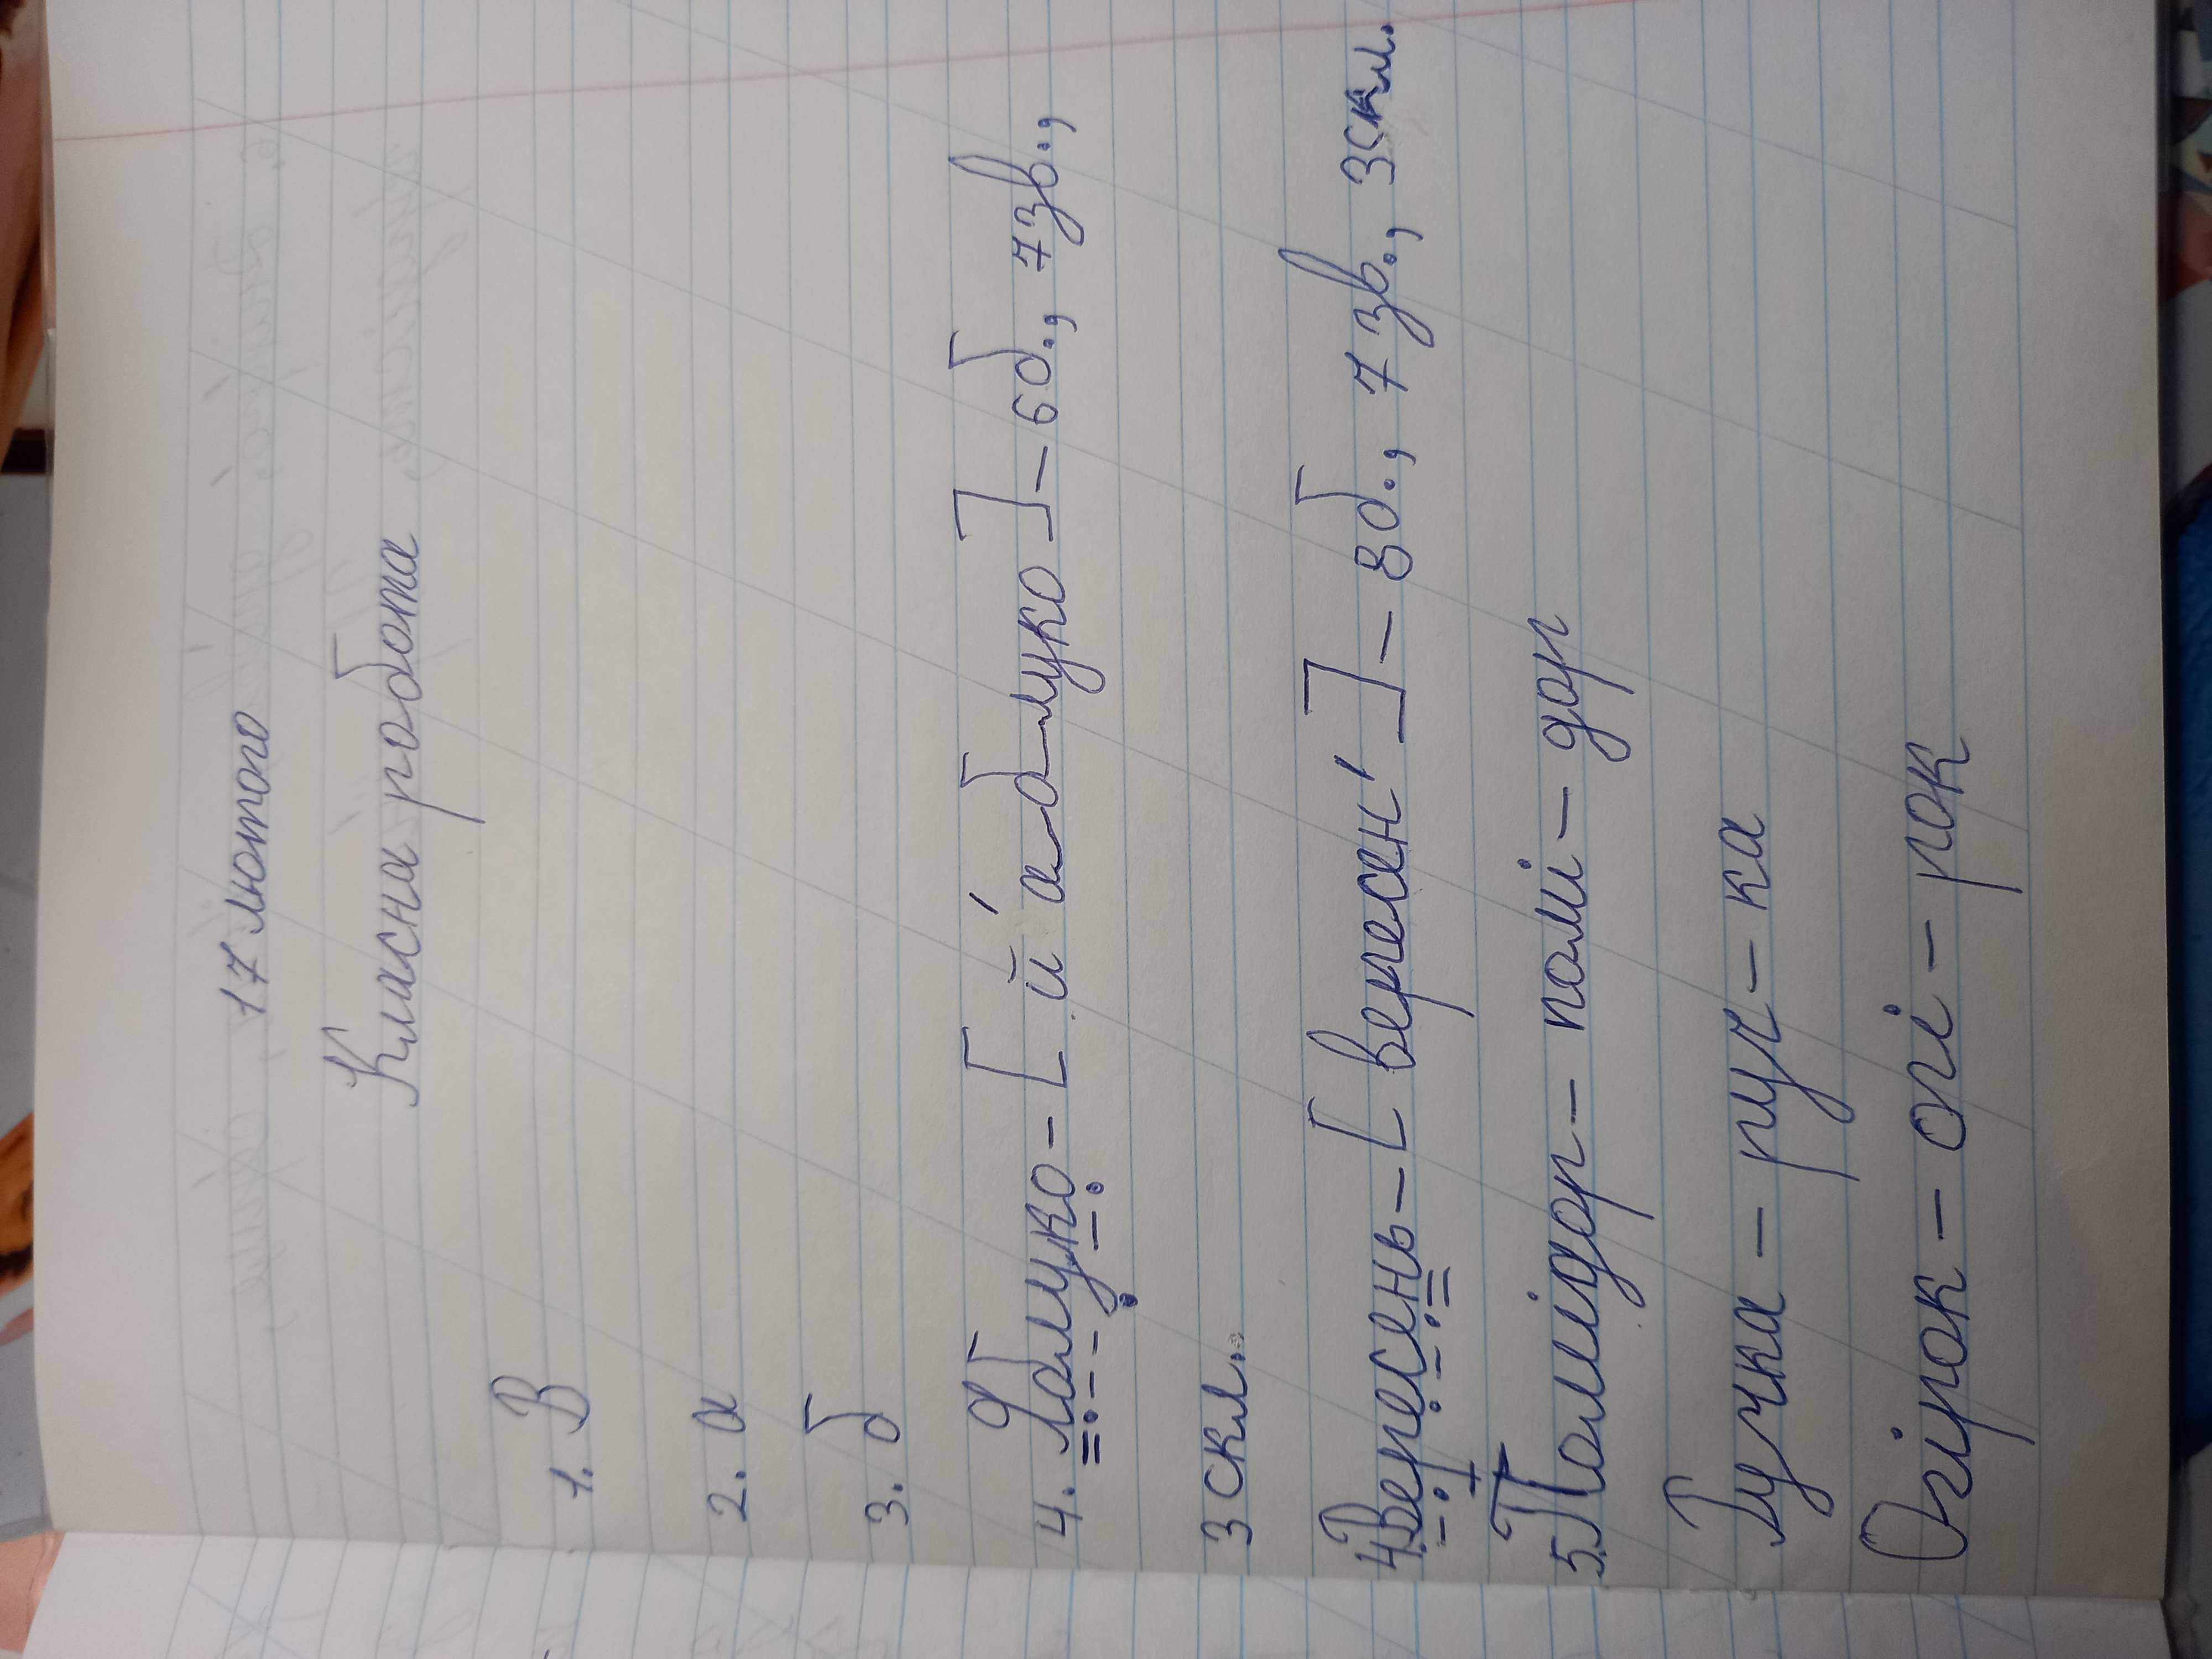 17 лютого
Класна робота
1. В
2. а
3. б
4. Яблуко - [ й а́ блуко ] - 6б., 7зв.,
3 скл.
4. Вересень - [ вересен' ] - 8б., 7 зв., 3скл.
5. Полмідор - помі - дор
Ручка - руч - ка
Огірок - огі - рок